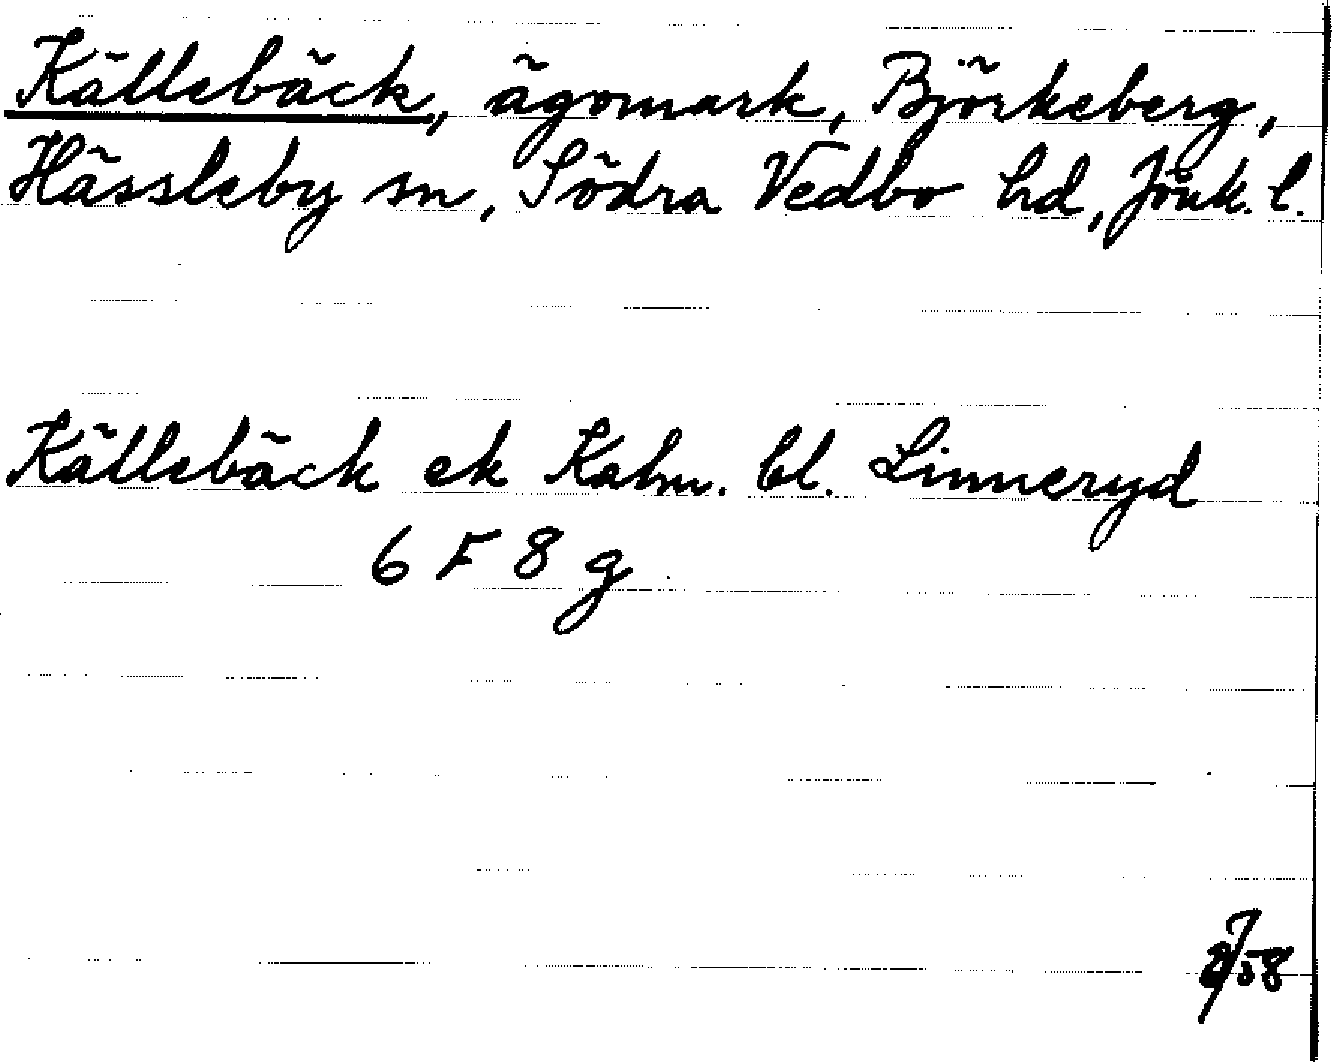 Källebäck, ägomark, Björkeberg,
Hässleby sn, Södra Vedbo hd, Jönk. l.
Källebäck ek Kahn. bl. Linneryd
6 F 8 g